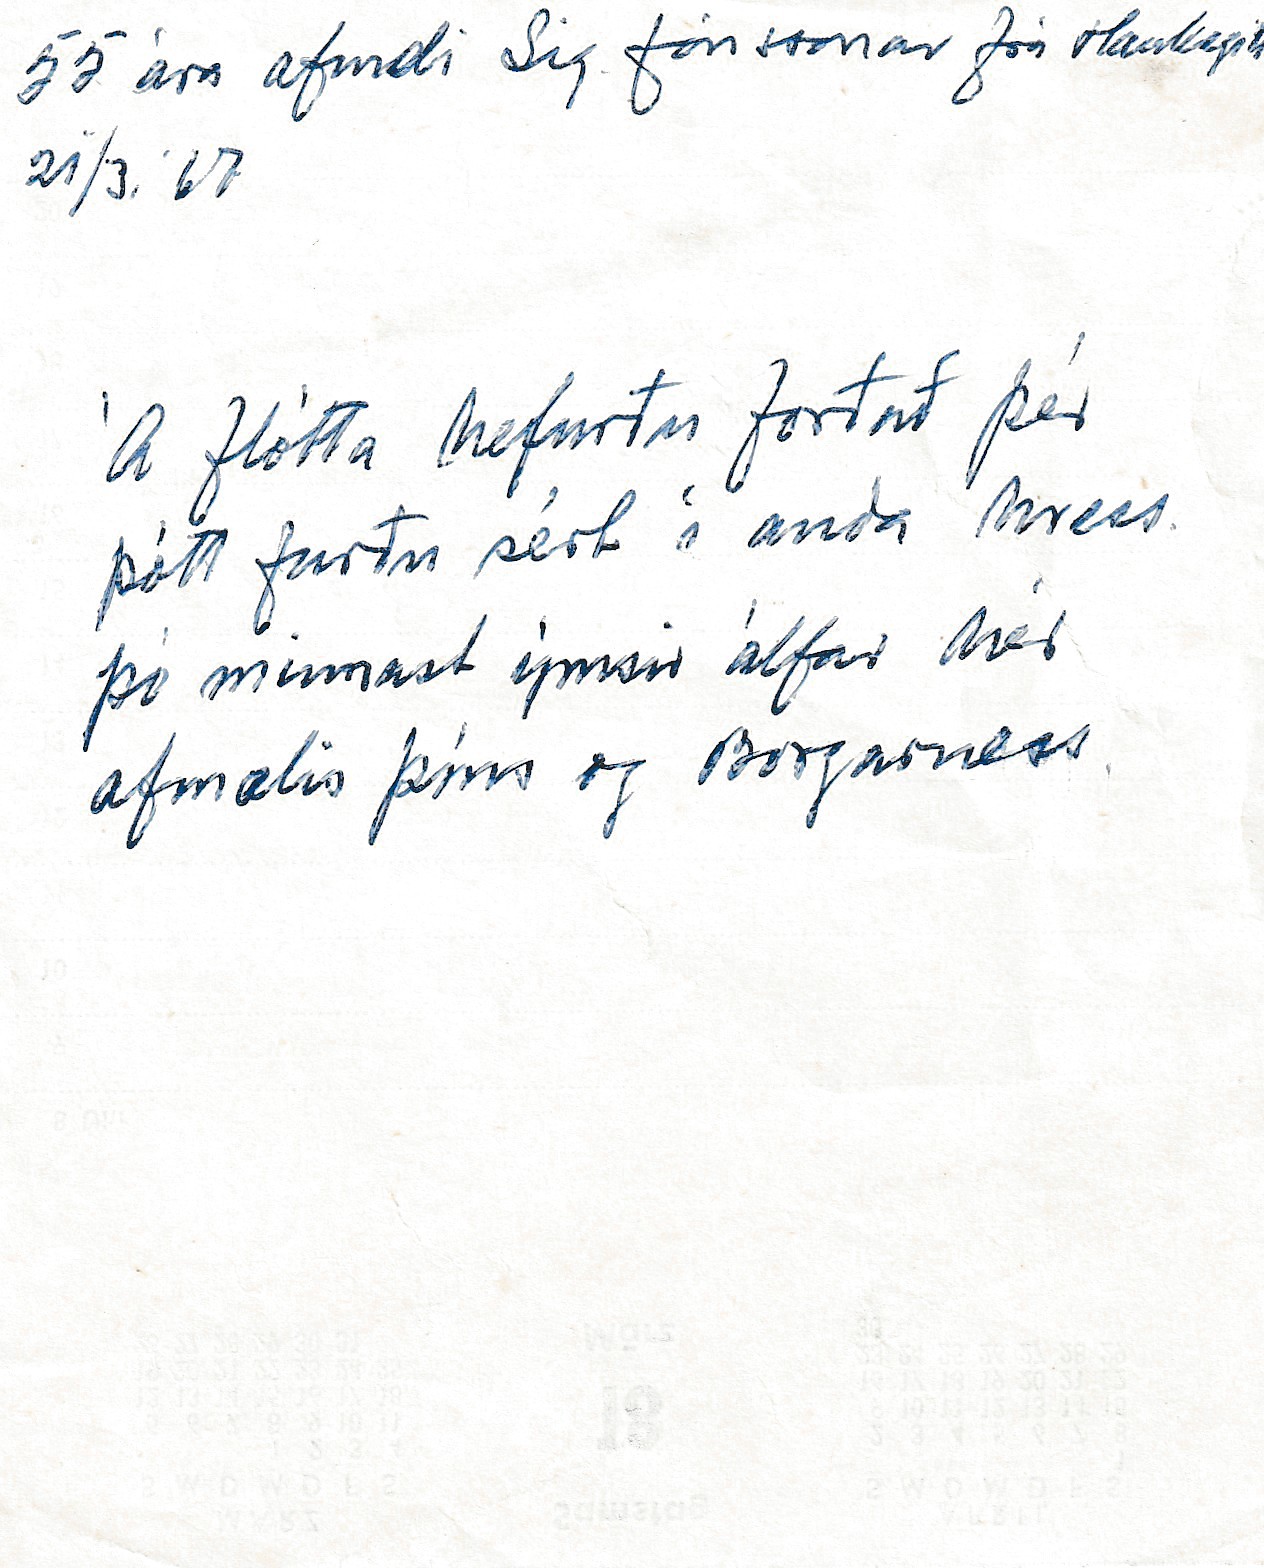 55 ára afmæli Sig. Jónssonar frá Haukagili
21/3. '67
Á flótta hefurðu forðað þér
þótt furðu sért í anda hress.
þó minnast ýmsir álfar hér
afmælis þíns og Borgarness.